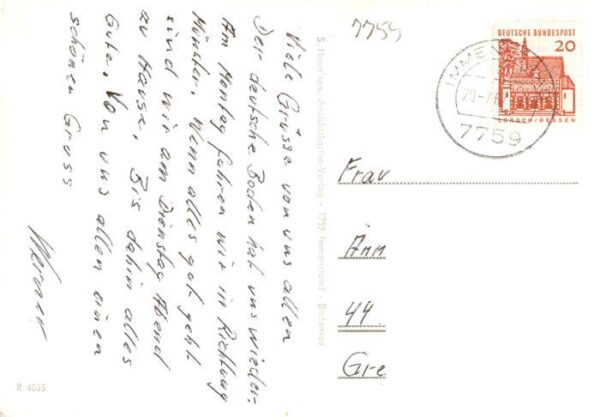 Viele Grüsse von uns allen
Der deutsche Boden hat uns wieder.
Am Montag fahren wir in Richtung
Münster. Wenn alles gut geht
sind wir am Dienstag Abend
zu Hause. Bis dahin alles
Gute. Von uns allen einen
schönen Gruss
Werner
R 4065
7759 Immenstaad · Bodensee
7759
DEUTSCHE BUNDESPOST
20
LORSCH/HESSEN
IMMEN
7759
Frau
Änn
44
Gre